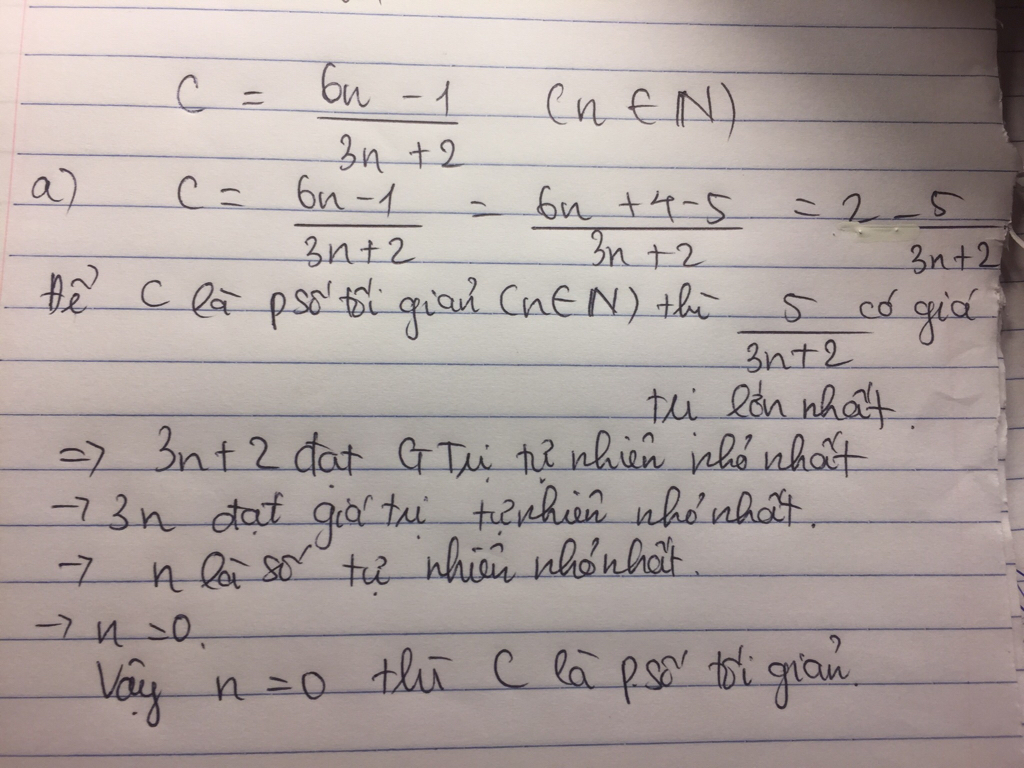 C = \frac{6n - 1}{3n + 2} (n ∈ N)
a) C = \frac{6n - 1}{3n + 2} = \frac{6n + 4 - 5}{3n + 2} = 2 - \frac{5}{3n + 2}
Để C là p số tối giản (n ∈ N) thì \frac{5}{3n + 2} có giá
trị lớn nhất.
=> 3n + 2 đạt GTrị tự nhiên nhỏ nhất
-> 3n đạt giá trị tự nhiên nhỏ nhất.
-> n là số tự nhiên nhỏ nhất.
-> n = 0.
Vậy n = 0 thì C là p số tối giản.